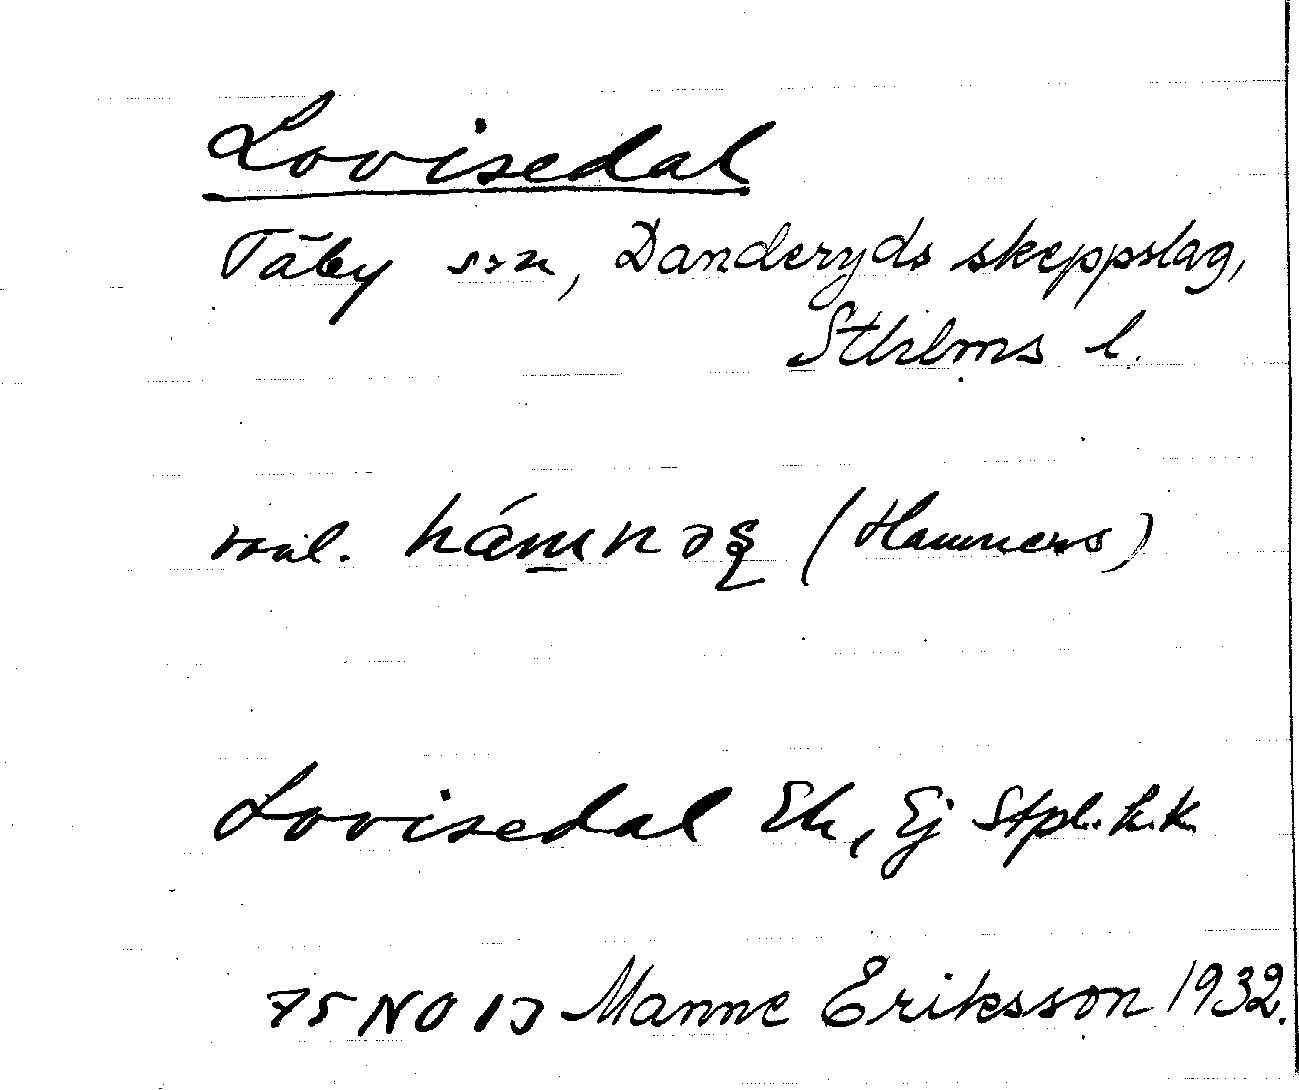 Lovisedal
Täby sn, Danderyds skeppslag,
Sthlms l.
vanl. hámnəs (Hamners)
Lovisedal Ek, Ej Stpl. h.k.
75 NO Manne Eriksson 1932.